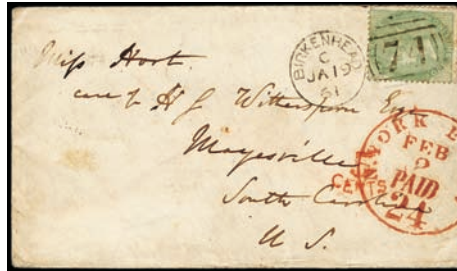 Miss Hort.
care to H J Witherspoon Esq
Mayesville
South Carolina
U S.
BIRKENHEAD
C
JA 19
61
71
N. YORK
FEB
2
PAID
24
CENTS